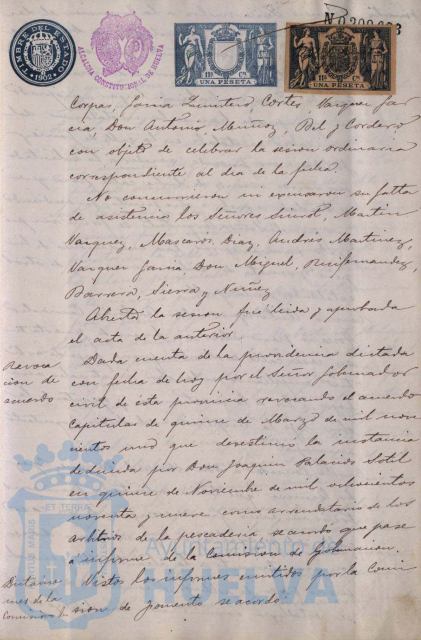 TIMBRE DEL ESTADO
1902
ALCALDIA CONSTITUCIONAL DE HUELVA
11ª Cª
UNA PESETA
11ª Cª
UNA PESETA
Nº
Corpas, Garcia Cortes, Vazquez Gar
cia, Don Antonio, Muñoz, Bel y Cordero
con objeto de celebrar la sesion ordinaria
correspondiente al dia de la fecha.
No concurrieron ni excusaron su falta
de asistencia los Señores Martin
Vazquez, Mascaros, Diaz, Andrés Martinez,
Vazquez Garcia Don Miguel, Ruifernandez,
Barrera, Sierra y Nuñez
Abierta la sesion fué leida y aprobada
el acta de la anterior.
Revoca
cion de
acuerdo
Dada cuenta de la providencia dictada
con fecha de hoy por el Señor Gobernador
civil de esta provincia revocando el acuerdo
capitular de quince de Marzo de mil nove
cientos uno que desestimó la instancia
deducida por Don Joaquin Palacios Sotel
en quince de Noviembre de mil ochocientos
noventa y nueve como arrendatario de los
arbitrios de la pescaderia se acordó que pase
a informe de la Comision de Gobernacion.
Dictame
nes de la
Comision
Vistos los informes emitidos por la Comi
sion de fomento se acordó
ET TERRA
Ayuntamiento de
HUELVA